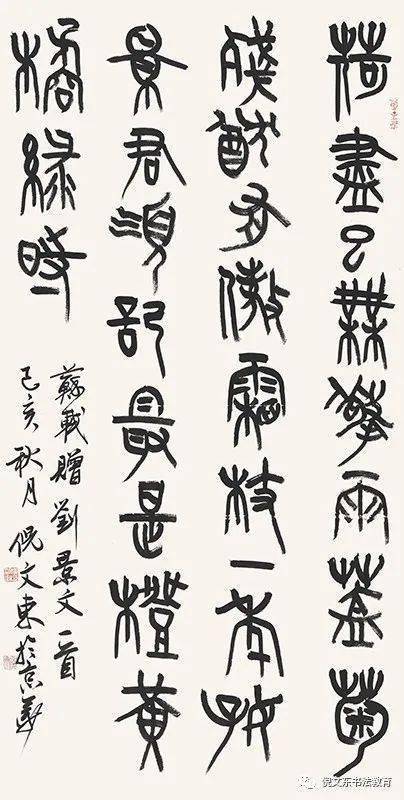 荷盡已無擎雨蓋菊
殘猶有傲霜枝一年好
景君須記最是橙黃
橘緑時
蘇軾贈劉景文一首
己亥秋月倪文東於京華
倪文东书法教育